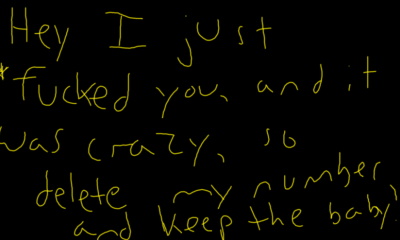 Hey I just
fucked you, and it
was crazy, so
delete my number
and keep the baby!